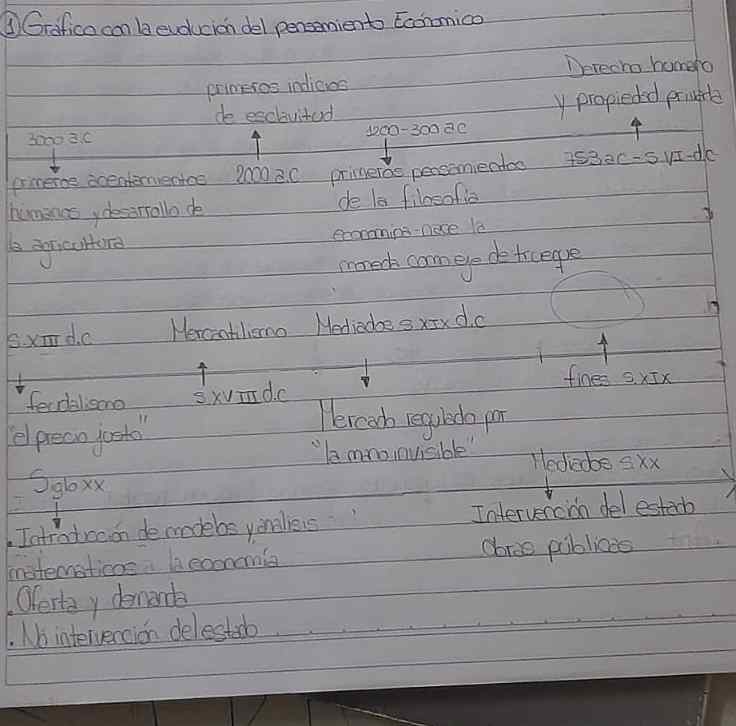 ① Grafico con la evolución del pensamiento Económico
primeros indicios
de esclavitud
Derecho humano
y propiedad privada
3000 a.C
1200-300 a.C
primeros asentamientos
humanos y desarrollo de
la agricultura
2000 a.C
primeros pensamientos
de la filosofia
economina-nace la
moneda como eje de trueque
753 a.C - S.VI-d.C
S.XIII d.C
Mercantilismo
Mediados s XIX d.C
feudalismo
"el precio justo"
S.XVIII d.C
Mercado regulado por
"la mano invisible"
fines s.XIX
Siglo xx
Mediados s XX
. Introducción de modelos y analisis
matematicos a la economía
. Oferta y demanda
. No intervención del estado
Intervención del estado
Obras públicas